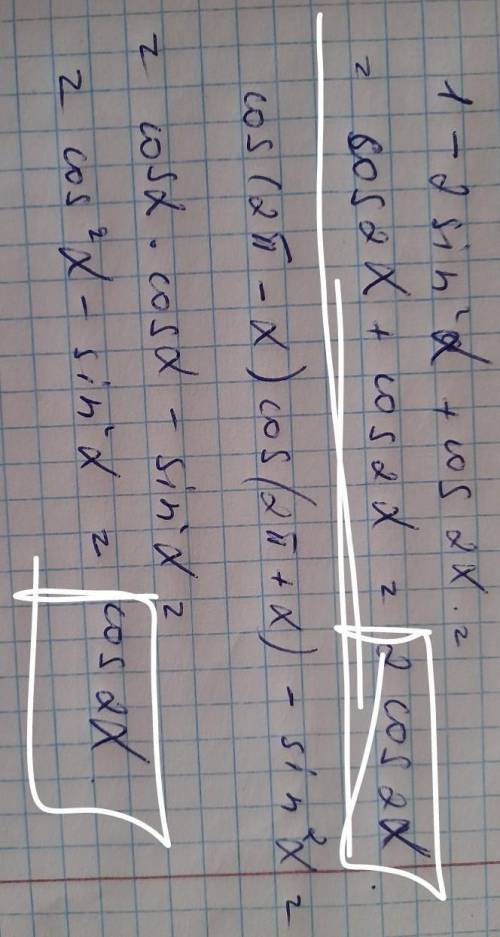 1 - 2 sin²α + cos 2α =
= cos 2α + cos 2α = 2 cos 2α
cos (2π - α) cos (2π + α) - sin²α =
= cos α · cos α - sin²α =
= cos²α - sin²α = cos 2α